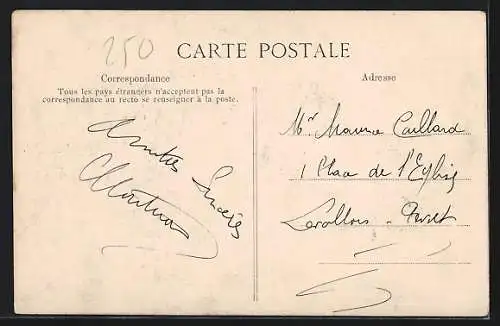 250
CARTE POSTALE
Correspondance
Tous les pays étrangers n'acceptent pas la
correspondance au recto se renseigner à la poste.
Amitiés Sincères
Adresse
Mr Maurice Caillard
1 Place de l'Eglise
Levallois-Perret